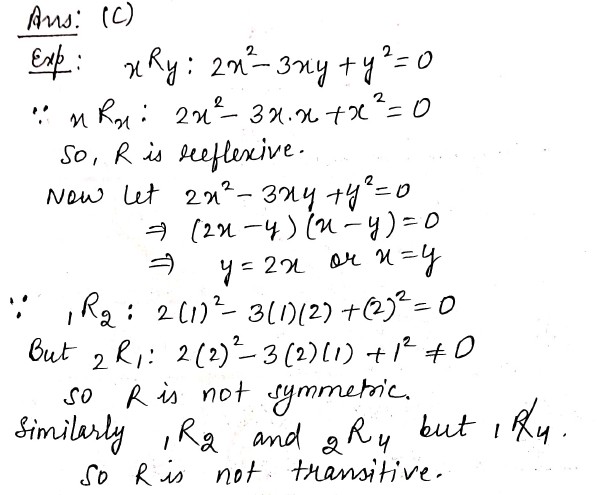 Ans: (C)
Exp: xRy: 2x²-3xy+y²=0
∵ xRx: 2x²-3x.x+x²=0
So, R is reeflexive.
Now let 2x²-3xy+y²=0
⇒ (2x-y)(x-y)=0
⇒ y=2x or x=y
∵ ₁R₂: 2(1)²-3(1)(2)+(2)²=0
But ₂R₁: 2(2)²-3(2)(1)+1²≠0
so R is not symmetric.
Similarly ₁R₂ and ₂R₄ but ₁R̸₄.
So R is not transitive.